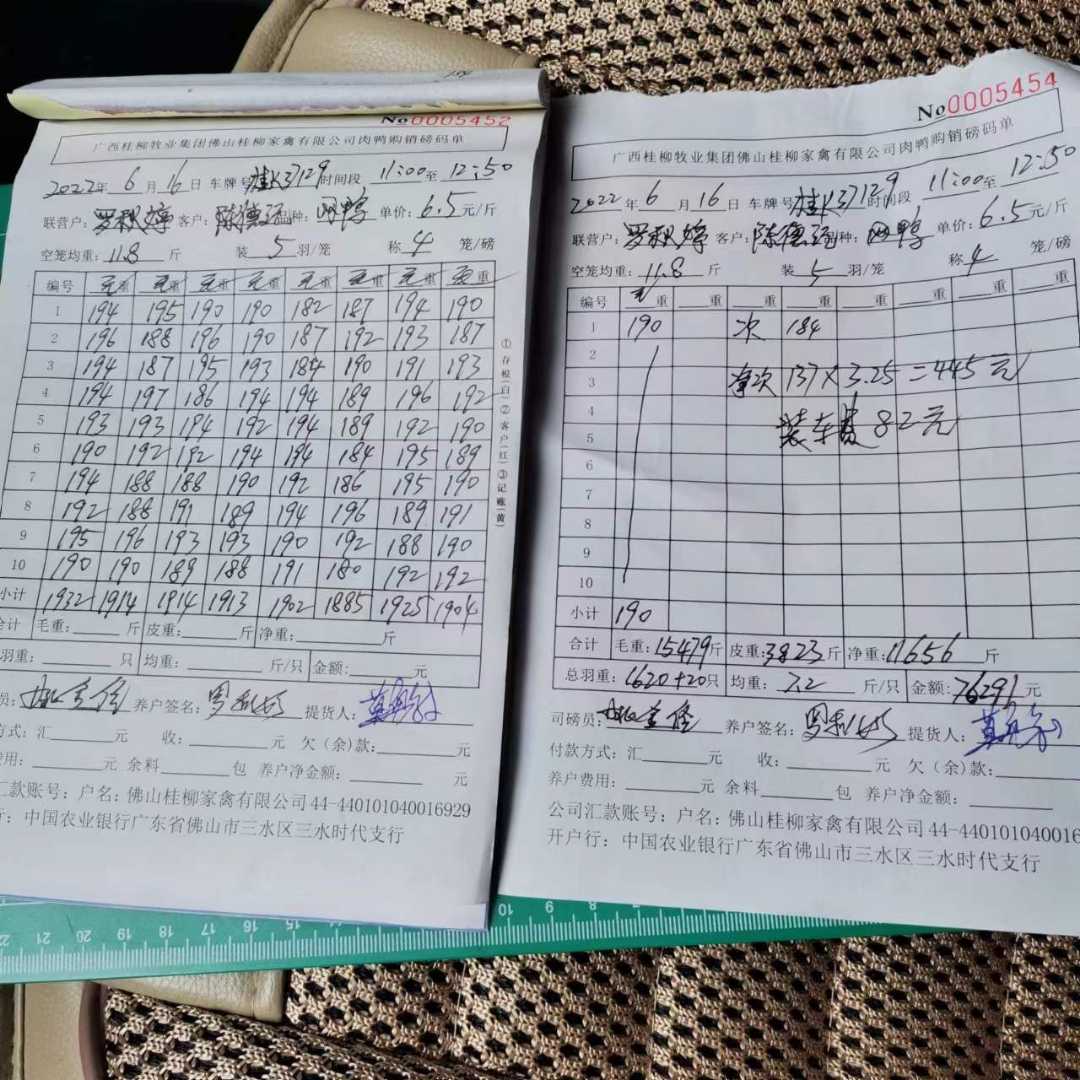 No0005452
广西桂柳牧业集团佛山桂柳家禽有限公司肉鸭购销磅码单
2022年 6月16日 车牌号桂K37129时间段 11:00至 12:50
联营户:罗秋婷 客户:陈德 品种: 鸭 单价:6.5元/斤
空笼均重:11.8斤 装5羽/笼 称4笼/磅
编号 毛重 毛重 毛重 毛重 毛重 毛重 毛重 毛重
1 194 195 190 190 182 187 194 190
2 196 188 196 190 187 192 193 187
3 194 187 195 193 184 190 191 193
4 194 197 186 194 194 189 196 192
5 193 193 194 192 194 189 192 190
6 190 192 192 194 194 184 195 189
7 194 188 188 190 192 186 195 190
8 192 188 191 189 194 196 189 191
9 195 196 193 193 190 192 188 190
10 190 190 189 188 191 180 192 192
小计 1932 1914 1914 1913 1902 1885 1925 1904
合计 毛重:斤 皮重:斤 净重:斤
羽重:只 均重:斤/只 金额:元
员: 养户签名: 提货人:
方式:汇元 收:元 欠(余)款:元
费用:元 余料包 养户净金额:元
汇款账号:户名:佛山桂柳家禽有限公司44-440101040016929
行:中国农业银行广东省佛山市三水区三水时代支行
①存根(白)②客户(红)③记账(黄)
No0005454
广西桂柳牧业集团佛山桂柳家禽有限公司肉鸭购销磅码单
2022年 6月16日 车牌号桂K37129时间段 11:00至 12:50
联营户:罗秋婷 客户:陈德 品种: 鸭 单价:6.5元/斤
空笼均重:11.8斤 装5羽/笼 称4笼/磅
编号 毛重 重 重 重 重 重 重 重
1 190 次 184
2
3 净次 137×3.25=445元
4 装车费82元
5
6
7
8
9
10
小计 190
合计 毛重:15479斤 皮重:3823斤 净重:11656斤
总羽重:1620+20只 均重:7.2斤/只 金额:76291元
司磅员: 养户签名: 提货人:
付款方式:汇元 收:元 欠(余)款:
养户费用:元 余料包 养户净金额:
公司汇款账号:户名:佛山桂柳家禽有限公司44-440101040016
开户行:中国农业银行广东省佛山市三水区三水时代支行